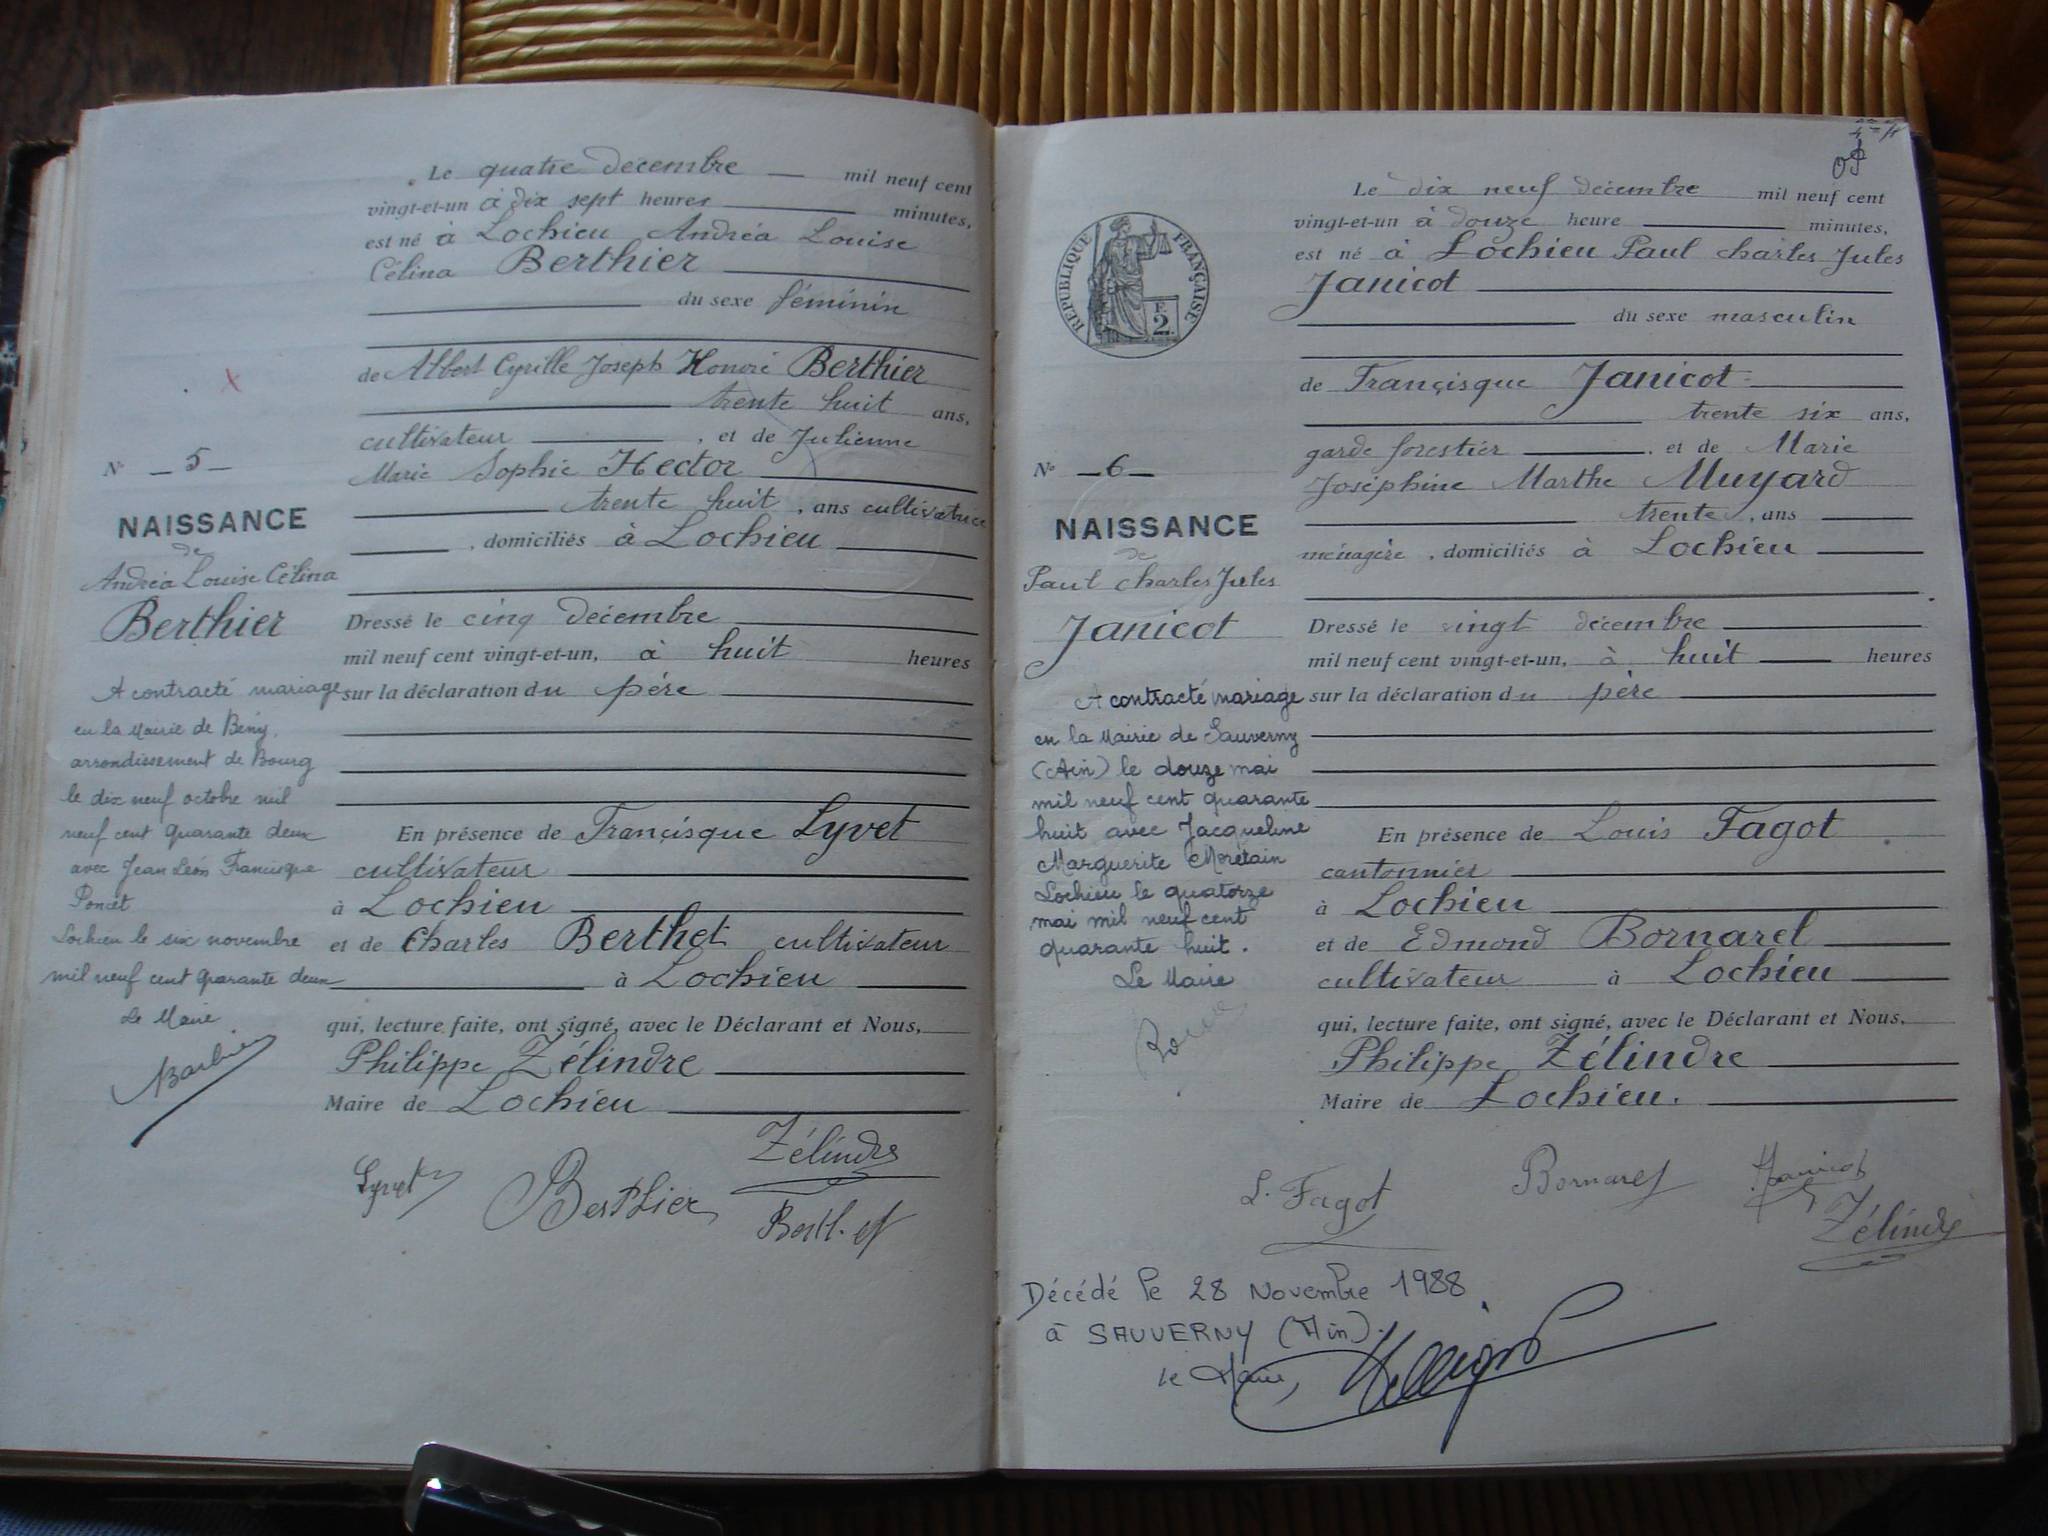 Le quatre décembre — mil neuf cent
vingt-et-un à dix sept heures minutes,
est né à Lochieu Andréa Louise
Célina Berthier
du sexe féminin
de Albert Cyrille Joseph Honoré Berthier
trente huit ans,
cultivateur , et de Julienne
Marie Sophie Hector
trente huit , ans cultivatrice
, domiciliés à Lochieu
Dressé le cinq décembre
mil neuf cent vingt-et-un, à huit heures
sur la déclaration du père
En présence de Françisque Lyvet
cultivateur
à Lochieu
et de Charles Berthet cultivateur
à Lochieu
qui, lecture faite, ont signé, avec le Déclarant et Nous,
Philippe Zélindre
Maire de Lochieu
Zélindre
Lyvet
Berthier
Berthet
N° — 5 —
NAISSANCE
de
Andréa Louise Célina
Berthier
A contracté mariage
en la Mairie de Bény,
arrondissement de Bourg
le dix neuf octobre mil
neuf cent quarante deux
avec Jean Léon Francisque
Poncet
Lochieu le six novembre
mil neuf cent quarante deux
Le Maire
RÉPUBLIQUE FRANÇAISE
2
Le dix neuf décembre mil neuf cent
vingt-et-un à douze heure minutes,
est né à Lochieu Paul Charles Jules
Janicot
du sexe masculin
de Françisque Janicot
trente six ans,
garde forestier , et de Marie
Joséphine Marthe Muyard
trente , ans
ménagère , domiciliés à Lochieu
Dressé le vingt décembre
mil neuf cent vingt-et-un, à huit heures
sur la déclaration du père
En présence de Louis Fagot
cantonnier
à Lochieu
et de Edmond Bornarel
cultivateur à Lochieu
qui, lecture faite, ont signé, avec le Déclarant et Nous.
Philippe Zélindre
Maire de Lochieu.
L. Fagot
Bornarel
Janicot
Zélindre
N° — 6 —
NAISSANCE
de
Paul Charles Jules
Janicot
A contracté mariage
en la Mairie de Sauverny
(Ain) le douze mai
mil neuf cent quarante
huit avec Jacqueline
Marguerite Moretain
Lochieu le quatorze
mai mil neuf cent
quarante huit.
Le Maire
Décédé le 28 Novembre 1988
à SAUVERNY (Ain).
le Maire,